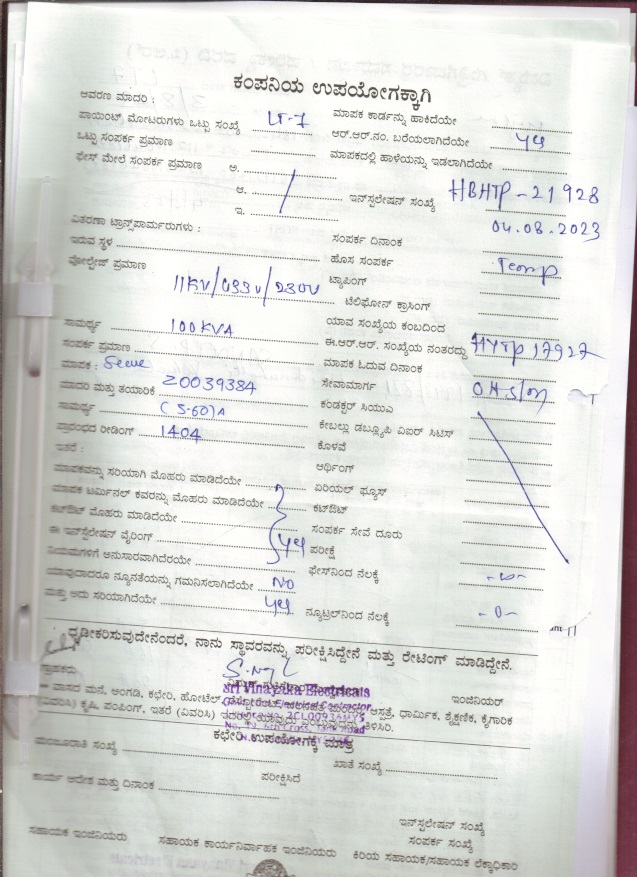 ಕಂಪನಿಯ ಉಪಯೋಗಕ್ಕಾಗಿ
ಆವರಣ ಮಾದರಿ :
ಮಾಪಕ ಕಾರ್ಡನ್ನು ಹಾಕಿದೆಯೇ
ಪಾಯಿಂಟ್ ಮೋಟರುಗಳು ಒಟ್ಟು ಸಂಖ್ಯೆ LT-7
ಆರ್.ಆರ್.ನಂ. ಬರೆಯಲಾಗಿದೆಯೇ
ಒಟ್ಟು ಸಂಪರ್ಕ ಪ್ರಮಾಣ
ಮಾಪಕದಲ್ಲಿ ಹಾಳೆಯನ್ನು ಇಡಲಾಗಿದೆಯೇ
ಫೇಸ್ ಮೇಲೆ ಸಂಪರ್ಕ ಪ್ರಮಾಣ ಅ.
ಆ.
ಇನ್‌ಸ್ಟಲೇಷನ್ ಸಂಖ್ಯೆ HBHTP-21928
ಇ.
04.08.2023
ವಿತರಣಾ ಟ್ರಾನ್ಸ್‌ಪಾರ್ಮರುಗಳು :
ಸಂಪರ್ಕ ದಿನಾಂಕ
ಇರುವ ಸ್ಥಳ
ಹೊಸ ಸಂಪರ್ಕ Temp
ವೋಲ್ಟೇಜ್ ಪ್ರಮಾಣ 11KV/433V/230V
ಟ್ಯಾಪಿಂಗ್
ಟೆಲಿಫೋನ್ ಕ್ರಾಸಿಂಗ್
ಸಾಮರ್ಥ್ಯ 100KVA
ಯಾವ ಸಂಖ್ಯೆಯ ಕಂಬದಿಂದ
ಸಂಪರ್ಕ ಪ್ರಮಾಣ
ಈ.ಆರ್.ಆರ್. ಸಂಖ್ಯೆಯ ನಂತರದ್ದು HYTP 17927
ಮಾಪಕ :
ಮಾಪಕ ಓದುವ ದಿನಾಂಕ
ಮಾದರಿ ಮತ್ತು ತಯಾರಿಕೆ 20039384
ಸೇವಾಮಾರ್ಗ
ಸಾಮರ್ಥ್ಯ (5-60)A
ಕಂಡಕ್ಟರ್ ಸಿಯುಎ
ಪ್ರಾರಂಭದ ರೀಡಿಂಗ್ 1404
ಕೇಬಲ್ಲು ಡಬ್ಲ್ಯೂಪಿ ವಿಐರ್ ಸಿಟಿಸ್
ಇತರೆ :
ಕೊಳವೆ
ಅರ್ಥಿಂಗ್
ಮಾಪಕವನ್ನು ಸರಿಯಾಗಿ ಮೊಹರು ಮಾಡಿದೆಯೇ
ಏರಿಯಲ್ ಫ್ಯೂಸ್
ಮಾಪಕ ಟರ್ಮಿನಲ್ ಕವರನ್ನು ಮೊಹರು ಮಾಡಿದೆಯೇ
ಕಟ್‌ಔಟ್
ಕಟ್‌ಔಟ್ ಮೊಹರು ಮಾಡಿದೆಯೇ
ಸಂಪರ್ಕ ಸೇವೆ ದೂರು
ಈ ಇನ್‌ಸ್ಟಲೇಷನ್ ವೈರಿಂಗ್
ಪರೀಕ್ಷೆ
ನಿಯಮಗಳಿಗೆ ಅನುಸಾರವಾಗಿದೆರಯೇ
ಫೇಸ್‌ನಿಂದ ನೆಲಕ್ಕೆ
ಯಾವುದಾದರೂ ನ್ಯೂನತೆಯನ್ನು ಗಮನಿಸಲಾಗಿದೆಯೇ NO
ಮತ್ತು ಅದು ಸರಿಯಾಗಿದೆಯೇ
ನ್ಯೂಟ್ರಲ್‌ನಿಂದ ನೆಲಕ್ಕೆ -0-
ಧೃಡೀಕರಿಸುವುದೇನೆಂದರೆ, ನಾನು ಸ್ಥಾವರವನ್ನು ಪರೀಕ್ಷಿಸಿದ್ದೇನೆ ಮತ್ತು ರೇಟಿಂಗ್ ಮಾಡಿದ್ದೇನೆ.
ಗ್ರಾಹಕರು
ಇಂಜಿನಿಯರ್
Sri Vinayaka Electricals
** ವಾಸದ ಮನೆ, ಅಂಗಡಿ, ಕಛೇರಿ, ಹೋಟೆಲ್, ಆಸ್ಪತ್ರೆ, ಧಾರ್ಮಿಕ, ಶೈಕ್ಷಣಿಕ, ಕೈಗಾರಿಕ
(ವಿವರಿಸಿ) ಕೃಷಿ, ಪಂಪಿಂಗ್, ಇತರೆ (ವಿವರಿಸಿ) ತಿಳಿಸಿರಿ.
ಕಛೇರಿ ಉಪಯೋಗಕ್ಕೆ ಮಾತ್ರ
ಮಂಜೂರಾತಿ ಸಂಖ್ಯೆ
ಖಾತೆ ಸಂಖ್ಯೆ
ಕಾರ್ಯ ಆದೇಶ ಮತ್ತು ದಿನಾಂಕ
ಪರೀಕ್ಷಿಸಿದೆ
ಇನ್‌ಸ್ಟಲೇಷನ್ ಸಂಖ್ಯೆ
ಸಂಪರ್ಕ ಸಂಖ್ಯೆ
ಸಹಾಯಕ ಇಂಜಿನಿಯರು
ಸಹಾಯಕ ಕಾರ್ಯನಿರ್ವಾಹಕ ಇಂಜಿನಿಯರು
ಕಿರಿಯ ಸಹಾಯಕ/ಸಹಾಯಕ ಲೆಕ್ಕಾಧಿಕಾರಿ